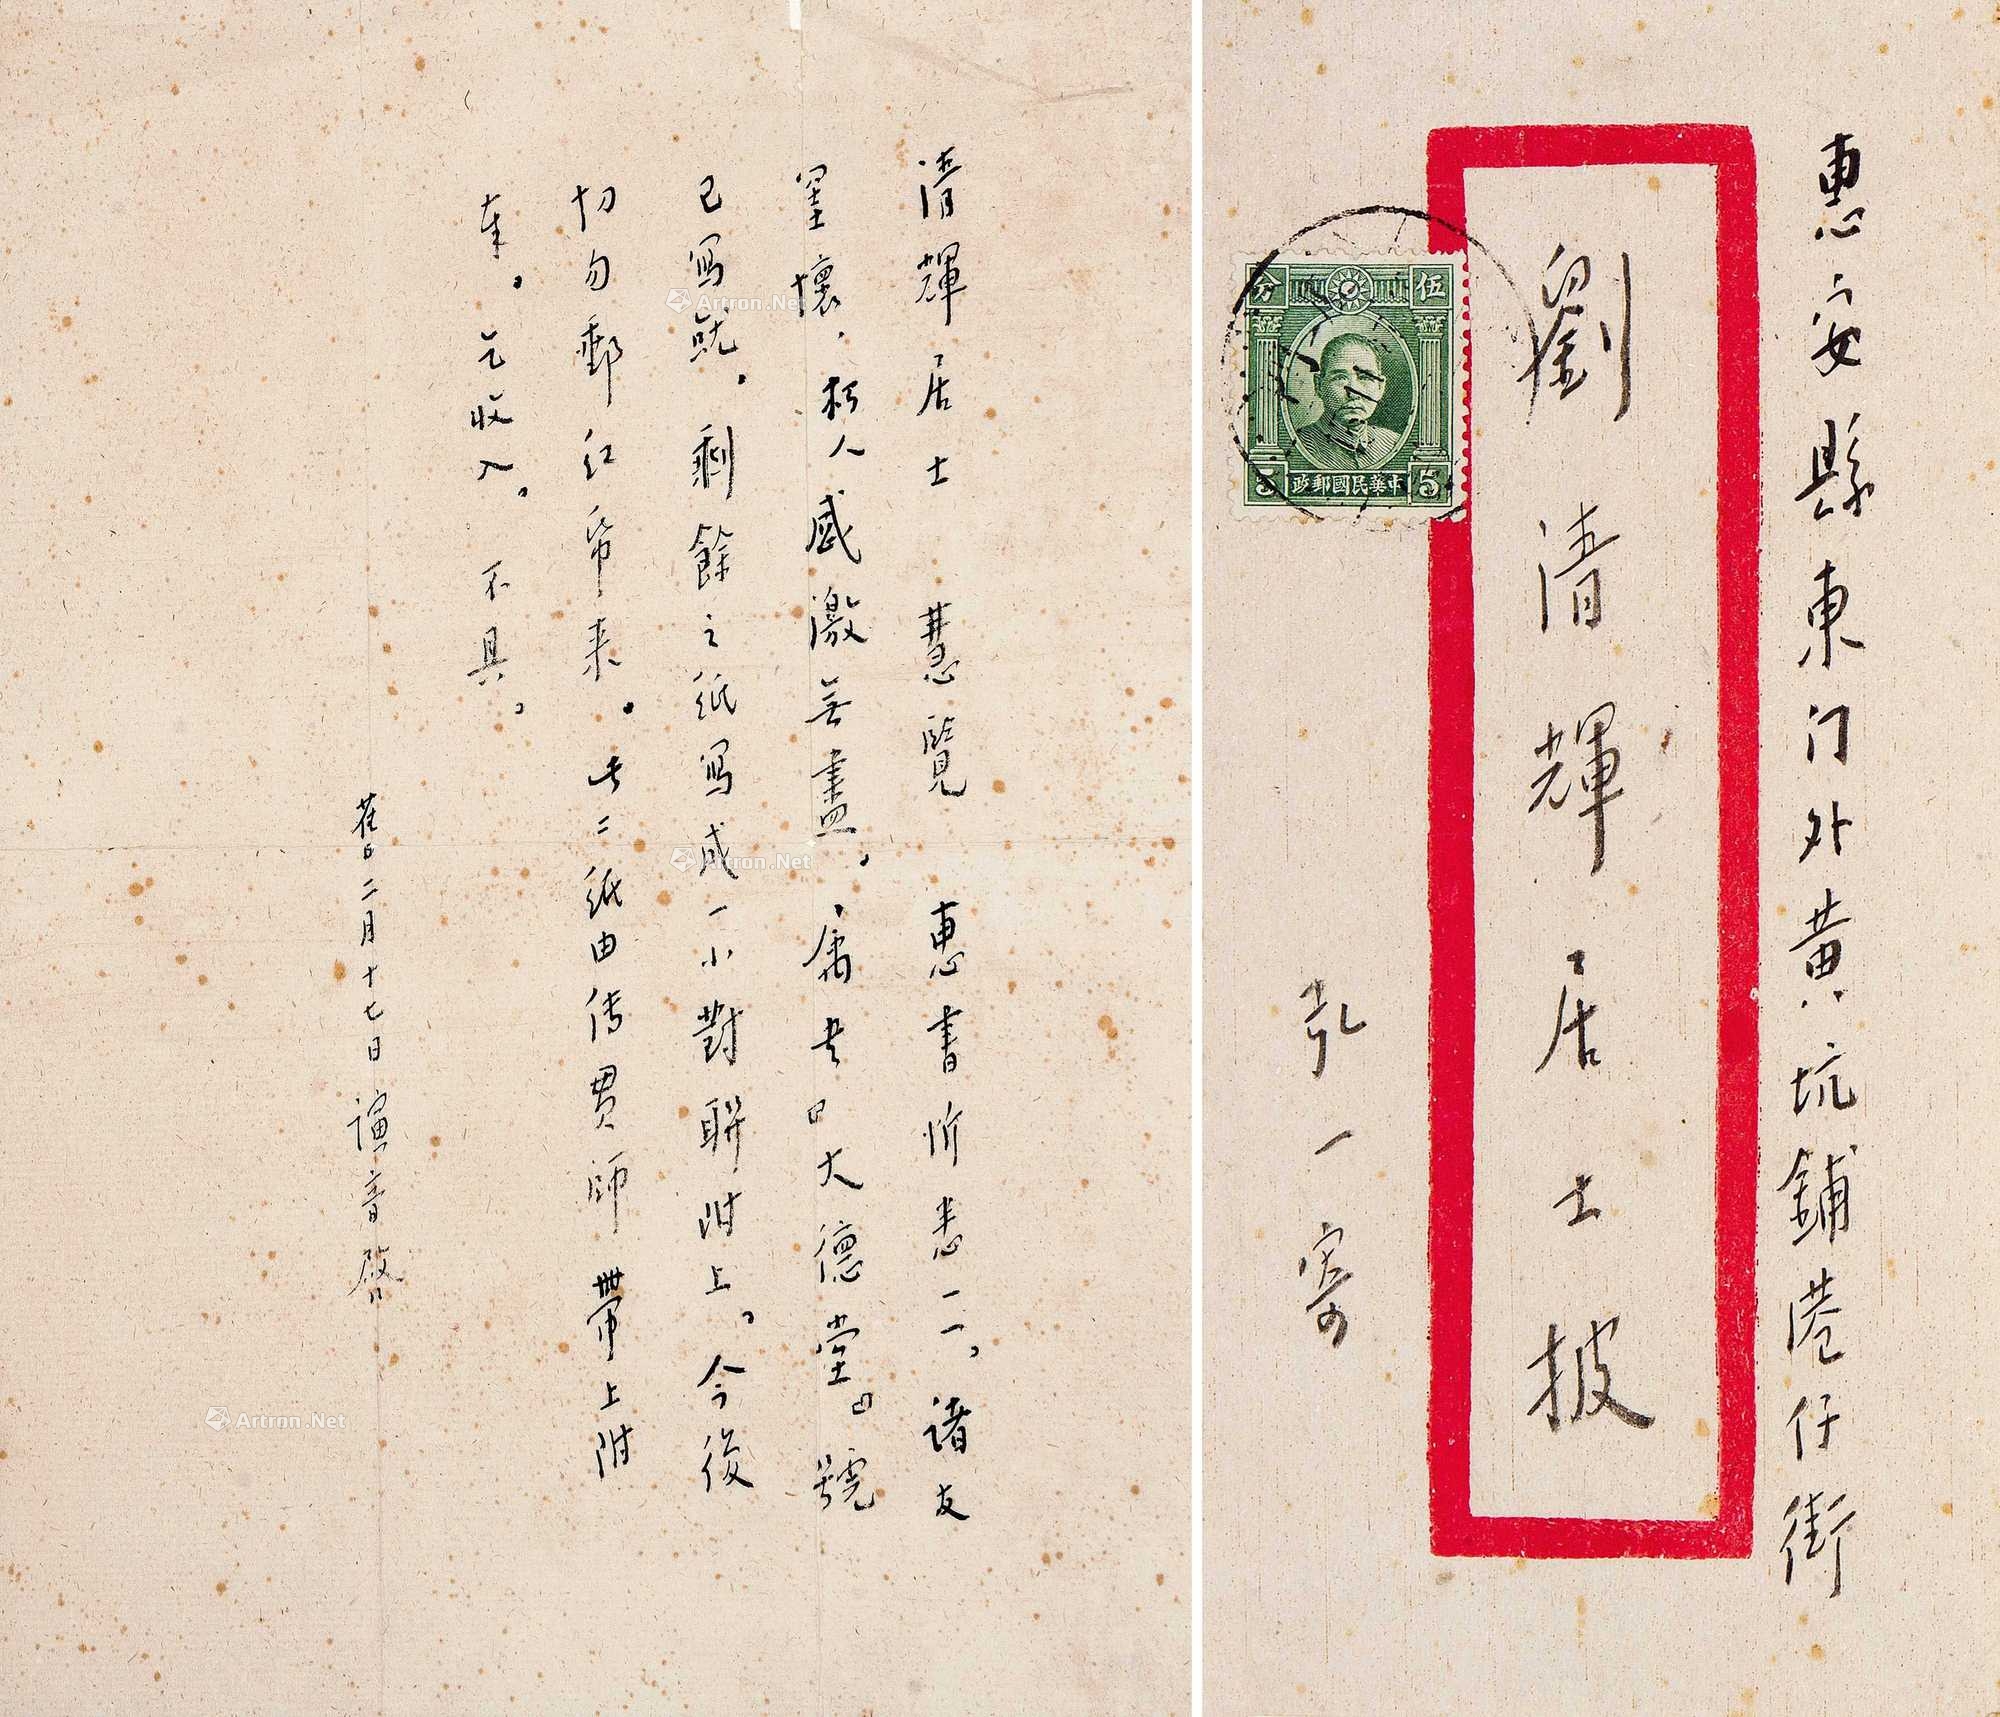 清輝居士 慧覽 惠書忻悉一一，諸友
呈懷，朽人感激無盡，屬書『大德堂』號
已寫就，剩餘之紙寫成一小對聯附上，今後
切勿郵紅帋来。此二紙由传贯師帶上附
奉，乞收入，不具，
舊二月十七日 演音啟
惠安縣東门外黄坑鋪港仔街
劉清輝居士披
弘一寄
伍分
5 中華民國郵政 5
Artron.Net
Artron.Net
Artron.Net